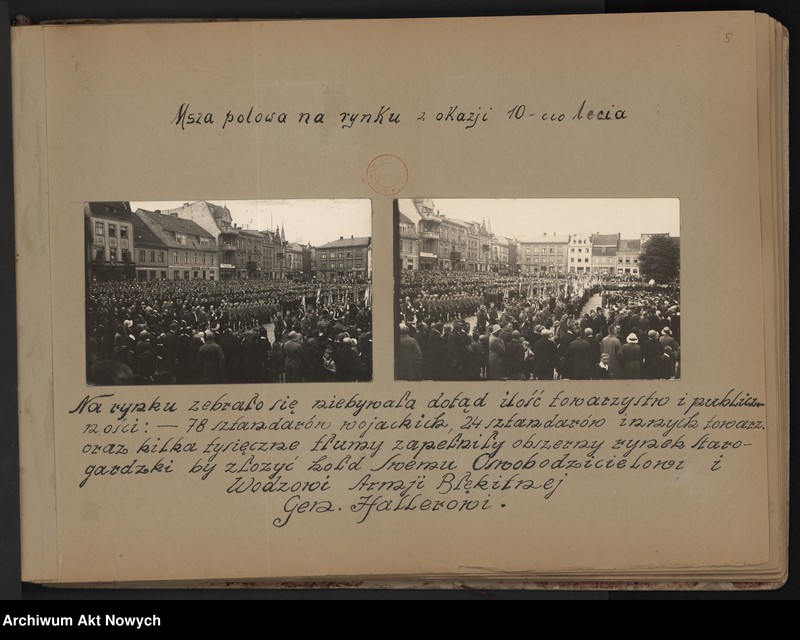 5
Msza polowa na rynku z okazji 10-cio lecia
Na rynku zebrało się niebywała dotąd ilość towarzystw i publicz-
ności: — 78 sztandarów wojackich, 24 sztandarów innych towarz.
oraz kilka tysięczne tłumy zapełniły obszerny rynek staro-
gardzki by złożyć hołd swemu Oswobodzicielowi i
Wodzowi Armji Błękitnej
Gen. Hallerowi.
Archiwum Akt Nowych